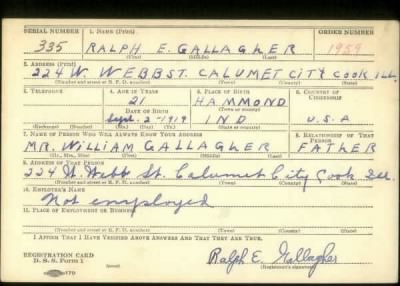 SERIAL NUMBER 1. NAME (Print) ORDER NUMBER
335 RALPH E. GALLAGHER 1959
(First) (Middle) (Last)
2. ADDRESS (Print)
224 W WEBB ST. CALUMET CITY COOK ILL.
(Number and street or R. F. D. number) (Town) (County) (State)
3. TELEPHONE 4. AGE IN YEARS 5. PLACE OF BIRTH 6. COUNTRY OF CITIZENSHIP
21 HAMMOND
DATE OF BIRTH (Town or county)
Sept. 2-1919 IND U.S.A
(Exchange) (Number) (Mo.) (Day) (Yr.) (State or country)
7. NAME OF PERSON WHO WILL ALWAYS KNOW YOUR ADDRESS 8. RELATIONSHIP OF THAT PERSON
MR. WILLIAM GALLAGHER FATHER
(Mr., Mrs., Miss) (First) (Middle) (Last)
9. ADDRESS OF THAT PERSON
224 W. Webb St. Calumet City Cook Ill.
(Number and street or R. F. D. number) (Town) (County) (State)
10. EMPLOYER'S NAME
Not employed
11. PLACE OF EMPLOYMENT OR BUSINESS
(Number and street or R. F. D. number) (Town) (County) (State)
I AFFIRM THAT I HAVE VERIFIED ABOVE ANSWERS AND THAT THEY ARE TRUE.
REGISTRATION CARD
D. S. S. Form 1 Ralph E. Gallagher
(Registrant's signature)